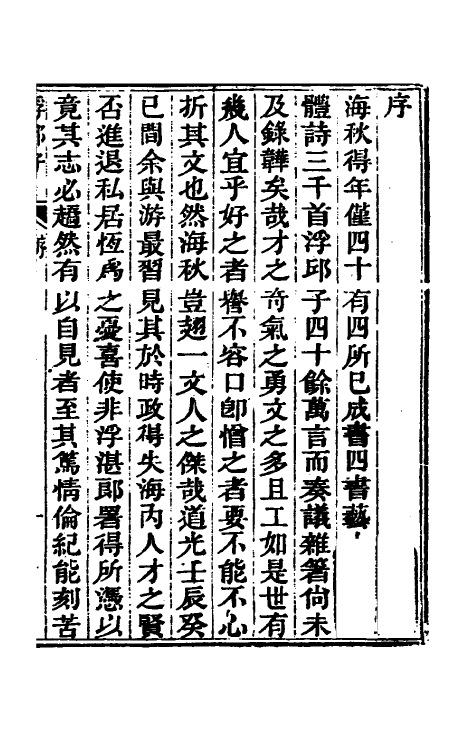 序
海秋得年僅四十有四所已成書四書藝
體詩三千首浮邱子四十餘萬言而奏議雜箸尙未
及錄韡矣哉才之奇氣之勇文之多且工如是世有
幾人宜乎好之者譽不容口卽憎之者要不能不心
折其文也然海秋豈趐一文人之傑哉道光壬辰癸
巳間余與游最習見其於時政得失海內人才之賢
否進退私居恆爲之憂喜使非浮湛郎署得所憑以
竟其志必趨然有以自見者至其篤情倫紀能刻苦
浮邱子